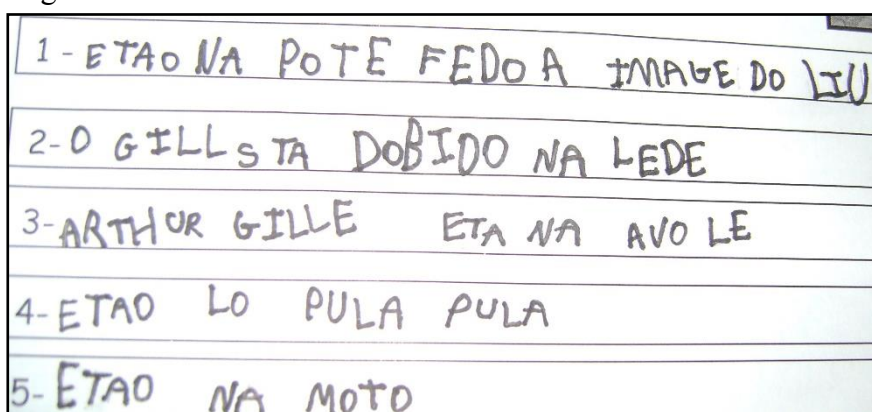 1 - ETAO NA POTE FEDO A IMAGE DO LIU
2- O GILL STA DOBIDO NA LEDE
3- ARTHUR GILLE ETA NA AVO LE
4- ETAO LO PULA PULA
5- ETAO NA MOTO